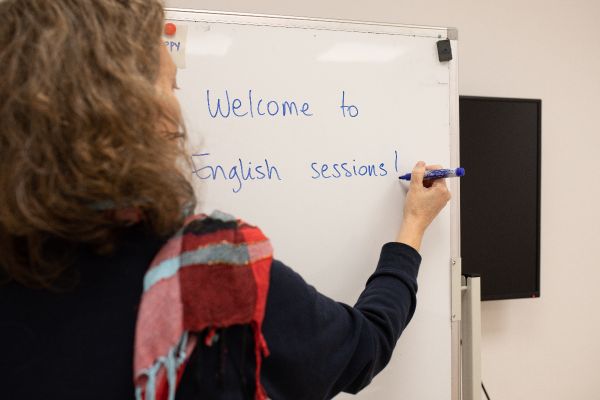 Welcome to
English sessions!